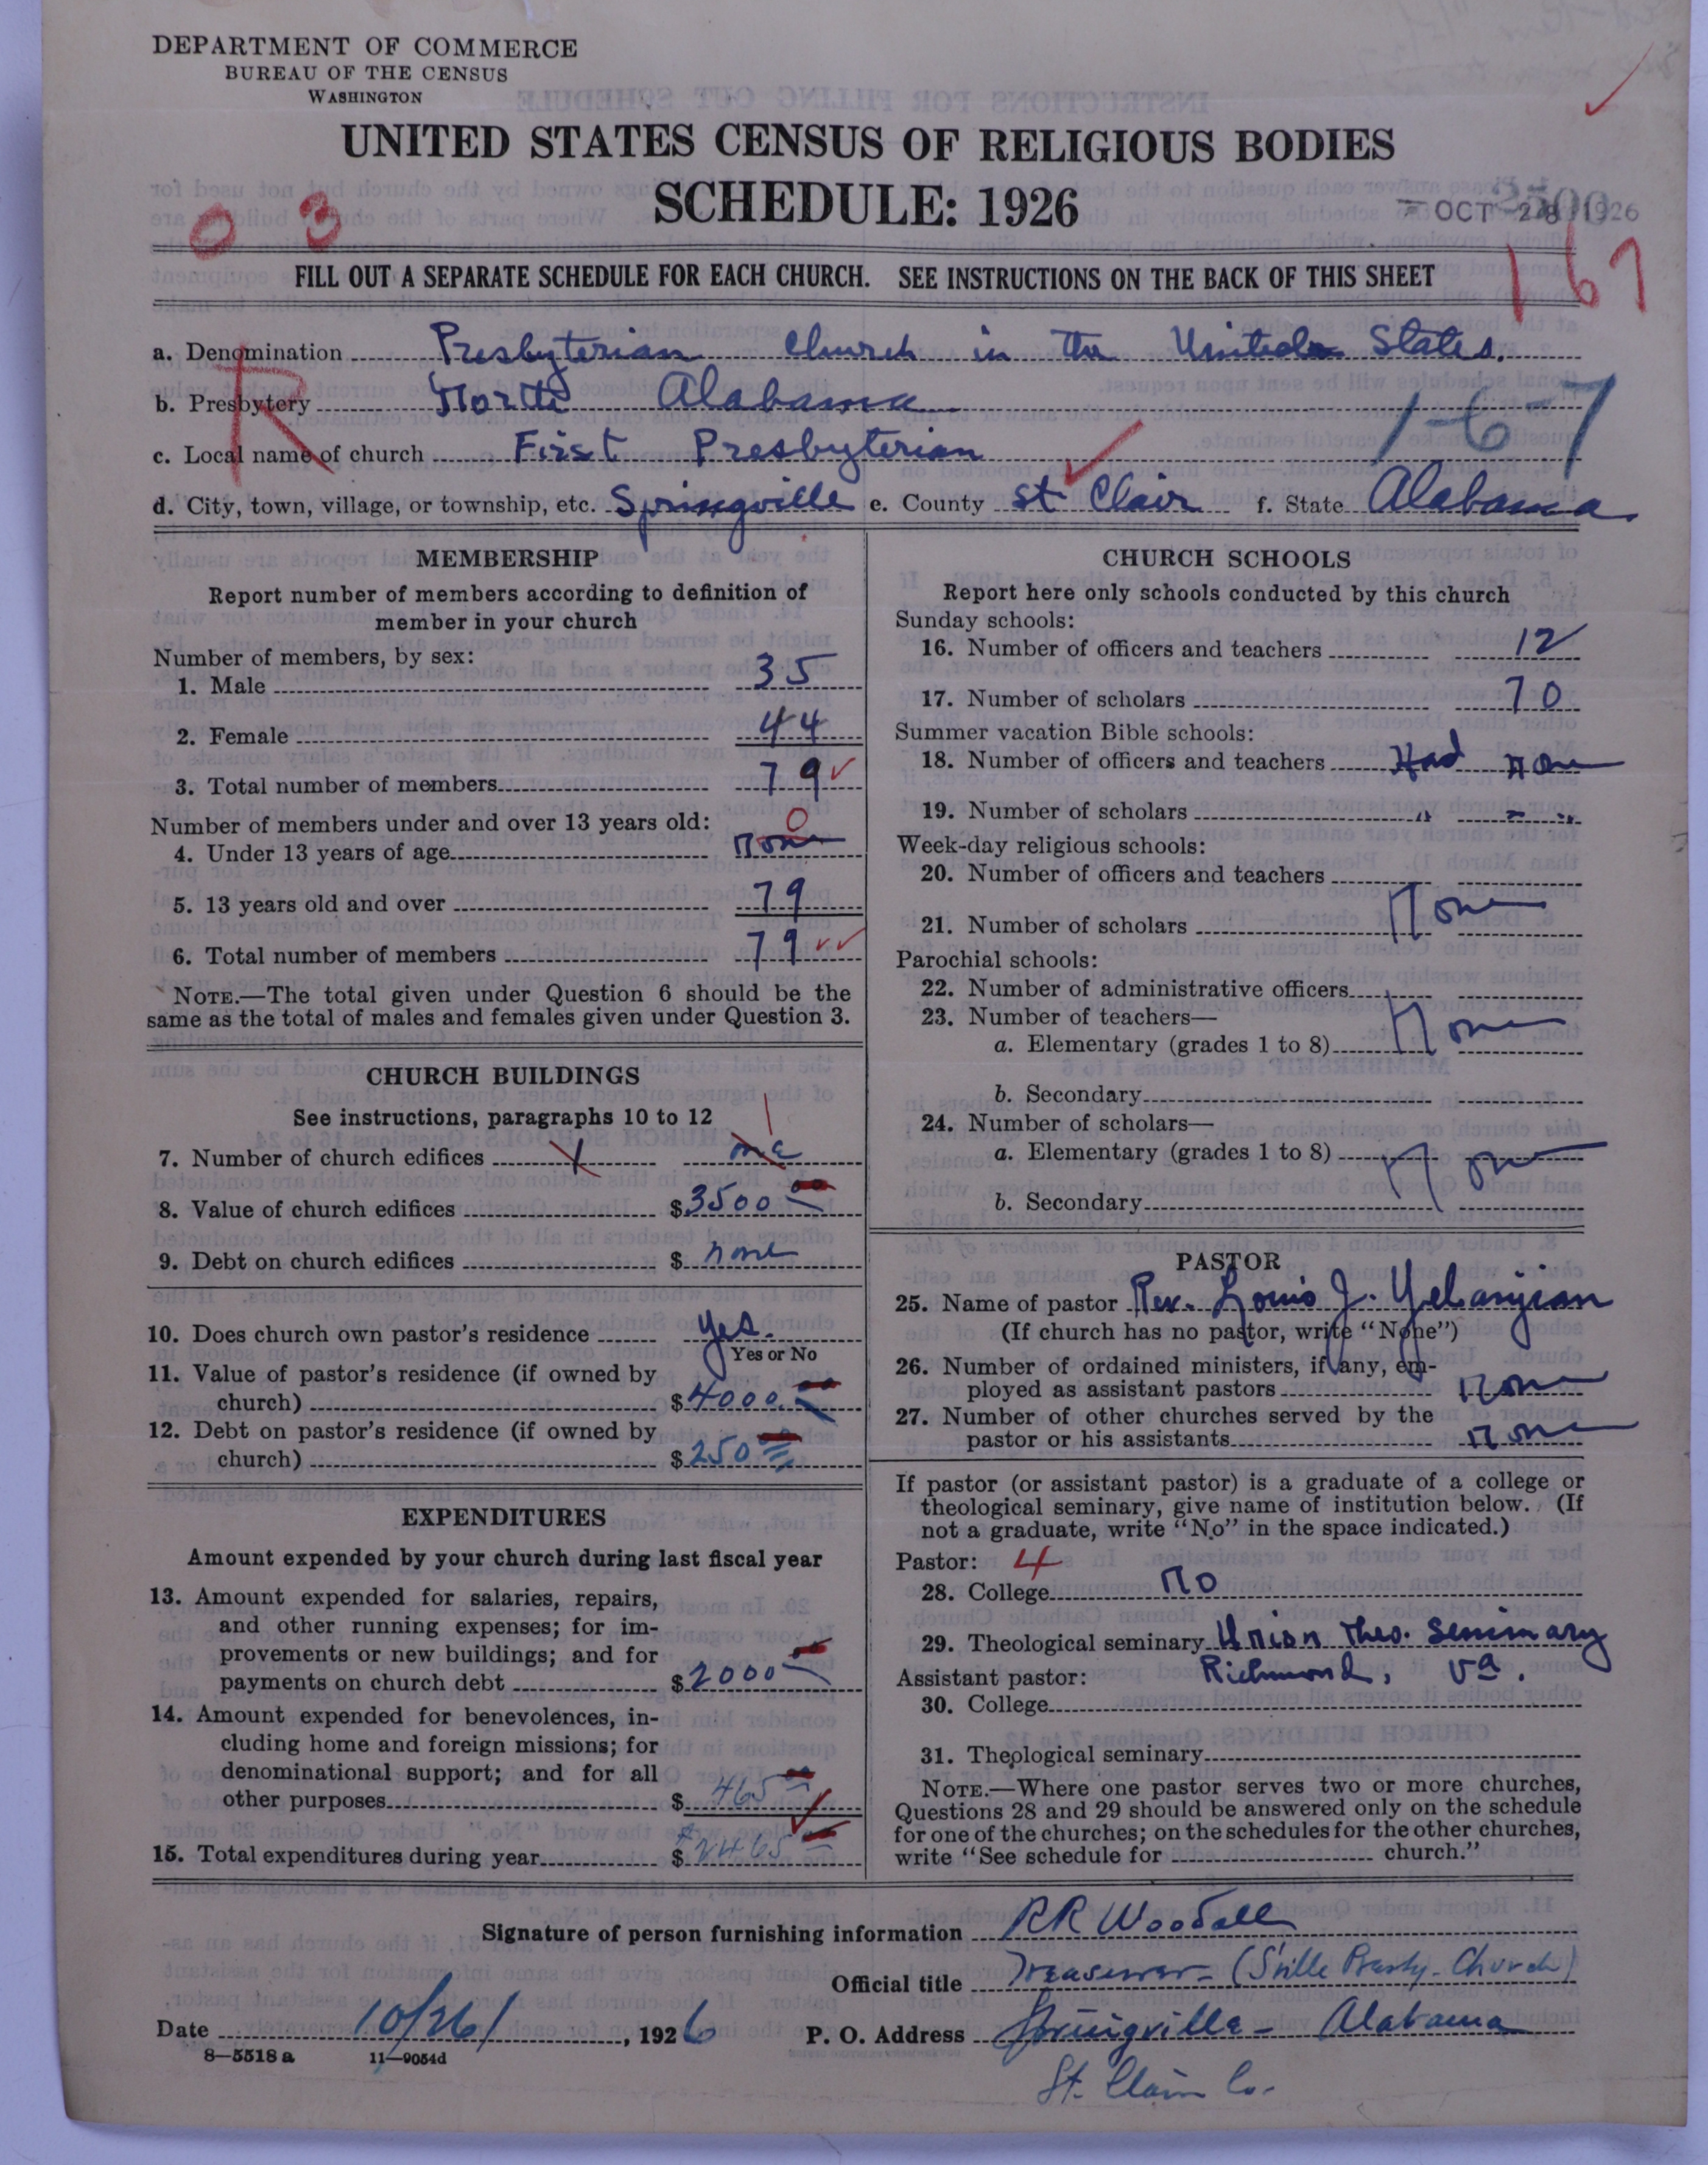 DEPARTMENT OF COMMERCE
BUREAU OF THE CENSUS
WASHINGTON
UNITED STATES CENSUS OF RELIGIOUS BODIES
SCHEDULE: 1926
OCT 28 1926
0 3
167
FILL OUT A SEPARATE SCHEDULE FOR EACH CHURCH. SEE INSTRUCTIONS ON THE BACK OF THIS SHEET
a. Denomination Presbyterian Church in the United States.
R
b. Presbytery North Alabama
1-6-7
c. Local name of church First Presbyterian
d. City, town, village, or township, etc. Springville e. County St Clair f. State Alabama
MEMBERSHIP
Report number of members according to definition of
member in your church
Number of members, by sex:
1. Male 35
2. Female 44
3. Total number of members 79
Number of members under and over 13 years old: 0
4. Under 13 years of age none
5. 13 years old and over 79
6. Total number of members 79
NOTE.—The total given under Question 6 should be the
same as the total of males and females given under Question 3.
CHURCH BUILDINGS
See instructions, paragraphs 10 to 12
1
7. Number of church edifices 1 one
8. Value of church edifices $ 3500 00
9. Debt on church edifices $ none
10. Does church own pastor's residence yes.
Yes or No
11. Value of pastor's residence (if owned by
church) $ 4000.00
12. Debt on pastor's residence (if owned by
church) $ 250 00
EXPENDITURES
Amount expended by your church during last fiscal year
13. Amount expended for salaries, repairs,
and other running expenses; for im-
provements or new buildings; and for
payments on church debt $ 2000 00
14. Amount expended for benevolences, in-
cluding home and foreign missions; for
denominational support; and for all
other purposes $ 465 00
15. Total expenditures during year $ $2465 00
CHURCH SCHOOLS
Report here only schools conducted by this church
Sunday schools:
16. Number of officers and teachers 12
17. Number of scholars 70
Summer vacation Bible schools:
18. Number of officers and teachers Had none
19. Number of scholars " " "
Week-day religious schools:
20. Number of officers and teachers
21. Number of scholars None
Parochial schools:
22. Number of administrative officers
23. Number of teachers— None
a. Elementary (grades 1 to 8)
b. Secondary
24. Number of scholars—
a. Elementary (grades 1 to 8) None
b. Secondary
PASTOR
25. Name of pastor Rev. Louis J. Yelanjian
(If church has no pastor, write "None")
26. Number of ordained ministers, if any, em-
ployed as assistant pastors None
27. Number of other churches served by the
pastor or his assistants none
If pastor (or assistant pastor) is a graduate of a college or
theological seminary, give name of institution below. (If
not a graduate, write "No" in the space indicated.)
Pastor: 4
28. College no
29. Theological seminary Union Theo. Seminary
Richmond, Va.
Assistant pastor:
30. College
31. Theological seminary
NOTE.—Where one pastor serves two or more churches,
Questions 28 and 29 should be answered only on the schedule
for one of the churches; on the schedules for the other churches,
write "See schedule for church."
Signature of person furnishing information RR Woodall
Official title Treasurer - (S'ville Presby. Church)
Date 10/26/, 1926 P. O. Address Springville - Alabama
8—5518 a 11—9054d
St. Clair Co.